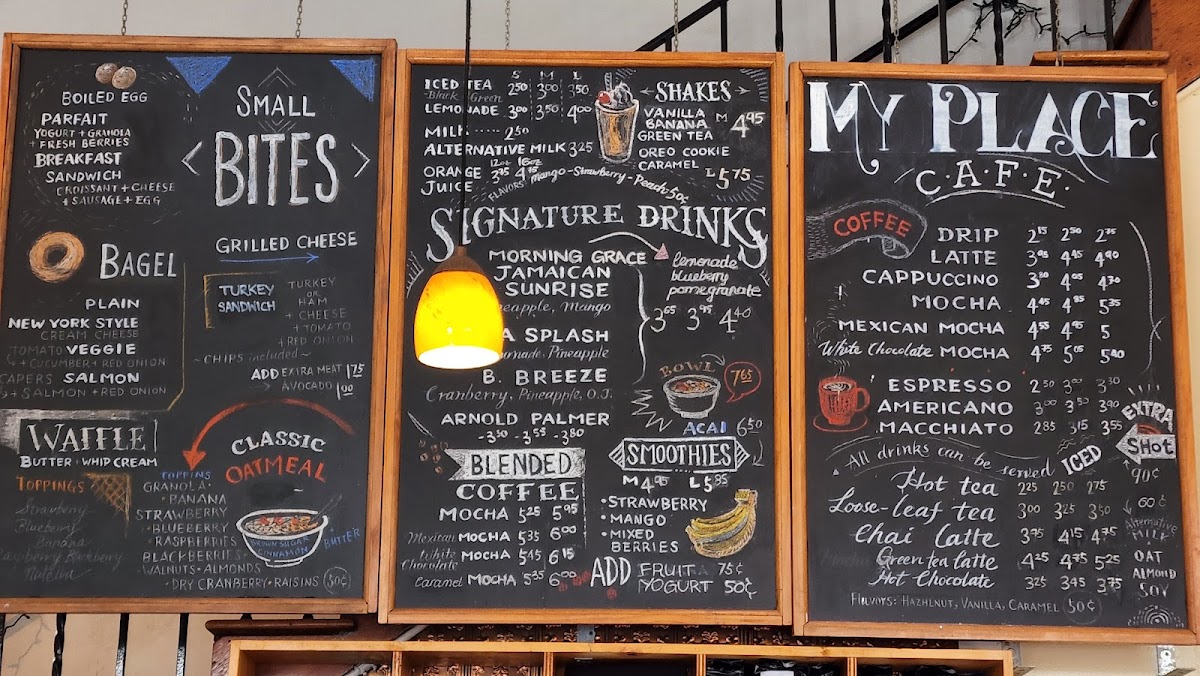 BOILED EGG
PARFAIT
YOGURT + GRANOLA
+ FRESH BERRIES
BREAKFAST
SANDWICH
CROISSANT + CHEESE
+ SAUSAGE + EGG
SMALL
BITES
BAGEL
PLAIN
NEW YORK STYLE
CREAM CHEESE
TOMATO VEGGIE
+ CUCUMBER + RED ONION
CAPERS SALMON
+ SALMON + RED ONION
GRILLED CHEESE
TURKEY
SANDWICH
TURKEY
OR
HAM
+ CHEESE
+ TOMATO
+ RED ONION
~ CHIPS included ~
ADD EXTRA MEAT 1.75
AVOCADO 1.00
WAFFLE
BUTTER + WHIP CREAM
TOPPINGS
Strawberry
Blueberry
Banana
Raspberry Blackberry
Nutella
CLASSIC
OATMEAL
TOPPINS
GRANOLA
BANANA
STRAWBERRY
BLUEBERRY
RASPBERRIES
BLACKBERRIES
WALNUTS • ALMONDS
DRY CRANBERRY • RAISINS 50¢
BROWN SUGAR
CINNAMON
BUTTER
S M L
ICED TEA 2.50 3.00 3.50
-Black Green
LEMONADE 3.00 3.50 4.00
MILK ..... 2.50
ALTERNATIVE MILK 3.25
12oz 16oz
ORANGE 2.95 4.75
JUICE
FLAVORS: Mango-Strawberry-Peach 50¢
SHAKES
VANILLA M 4.95
BANANA
GREEN TEA
OREO COOKIE
CARAMEL L 5.75
SIGNATURE DRINKS
MORNING GRACE
lemonade
blueberry
pomegranate
JAMAICAN
SUNRISE
Mango
3.65 3.95 4.40
SPLASH
Pineapple
B. BREEZE
Cranberry, Pineapple, O.J.
ARNOLD PALMER
-3.30 -3.55 -3.80
BOWL 7.65
ACAI 6.50
BLENDED
COFFEE
MOCHA 5.25 5.95
Mexican MOCHA 5.35 6.00
White
Chocolate MOCHA 5.45 6.15
Caramel MOCHA 5.35 6.00
SMOOTHIES
M 4.95 L 5.85
• STRAWBERRY
• MANGO
• MIXED
BERRIES
ADD FRUIT 75¢
YOGURT 50¢
MY PLACE
C.A.F.E.
COFFEE
DRIP 2.15 2.50 2.75
LATTE 3.95 4.45 4.90
CAPPUCCINO 3.30 4.05 4.70
MOCHA 4.45 4.85 5.35
MEXICAN MOCHA 4.55 4.95 5
White Chocolate MOCHA 4.75 5.05 5.40
ESPRESSO 2.50 3.00 3.30
AMERICANO 3.00 3.50 3.90
MACCHIATO 2.85 3.15 3.55
EXTRA
SHOT
90¢
All drinks can be served ICED
Hot tea 2.25 2.50 2.75
Loose-leaf tea 3.00 3.25 3.50
Chai latte 3.95 4.15 4.75
Green tea latte 4.25 4.75 5.25
Hot Chocolate 3.25 3.45 3.75
60¢
Alternative
MILK
OAT
ALMOND
SOY
FLAVORS: HAZELNUT, VANILLA, CARAMEL 50¢